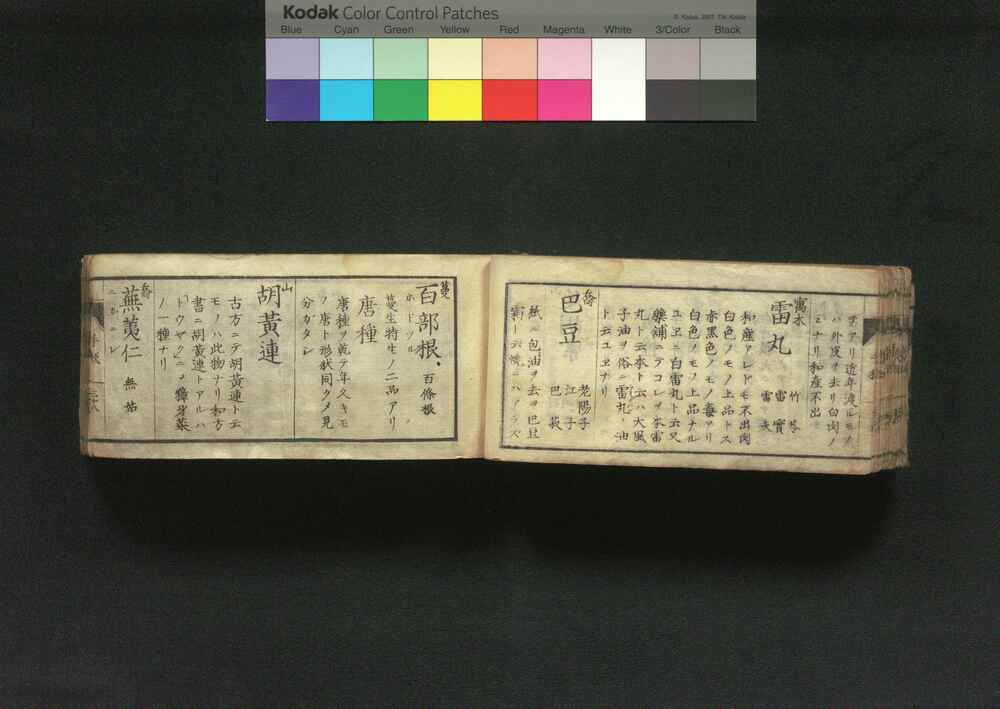 Kodak Color Control Patches
© Kodak, 2007 TM: Kodak
Blue Cyan Green Yellow Red Magenta White 3/Color Black
アリ近年渡ルモノ
ハ外皮ヲ去リ白肉ノ
ミナリ和産不出
寓木
雷丸
竹苓
雷實
雷矢
和産アレドモ不出肉
白色ノモノ上品トス
赤黒色ノモノ毒アリ
白色ノモノ上品ナル
ユヱニ白雷丸ト云又
藥鋪ニテコレヲ本雷
丸ト云本ト云ハ大風
子油ヲ俗ニ雷丸ノ油
ト云ユヱナリ
喬
巴豆
老陽子
江子
巴菽
紙ニ包油ヲ去ヲ巴豆
霜ト云燒ニハアラズ
蔓
百部根
百條根
ホトヅラ
蔓生特生ノ二品アリ
唐種
唐種ヲ栽テ年久キモ
ノ唐ト形狀同クメ見
分ガタシ
山
胡黃連
古方ニテ胡黃連ト云
モノハ此物ナリ和方
書ニ胡黃連トアルハ
トウヤクニメ獐牙菜
ノ一種ナリ
喬
蕪荑仁
無姑